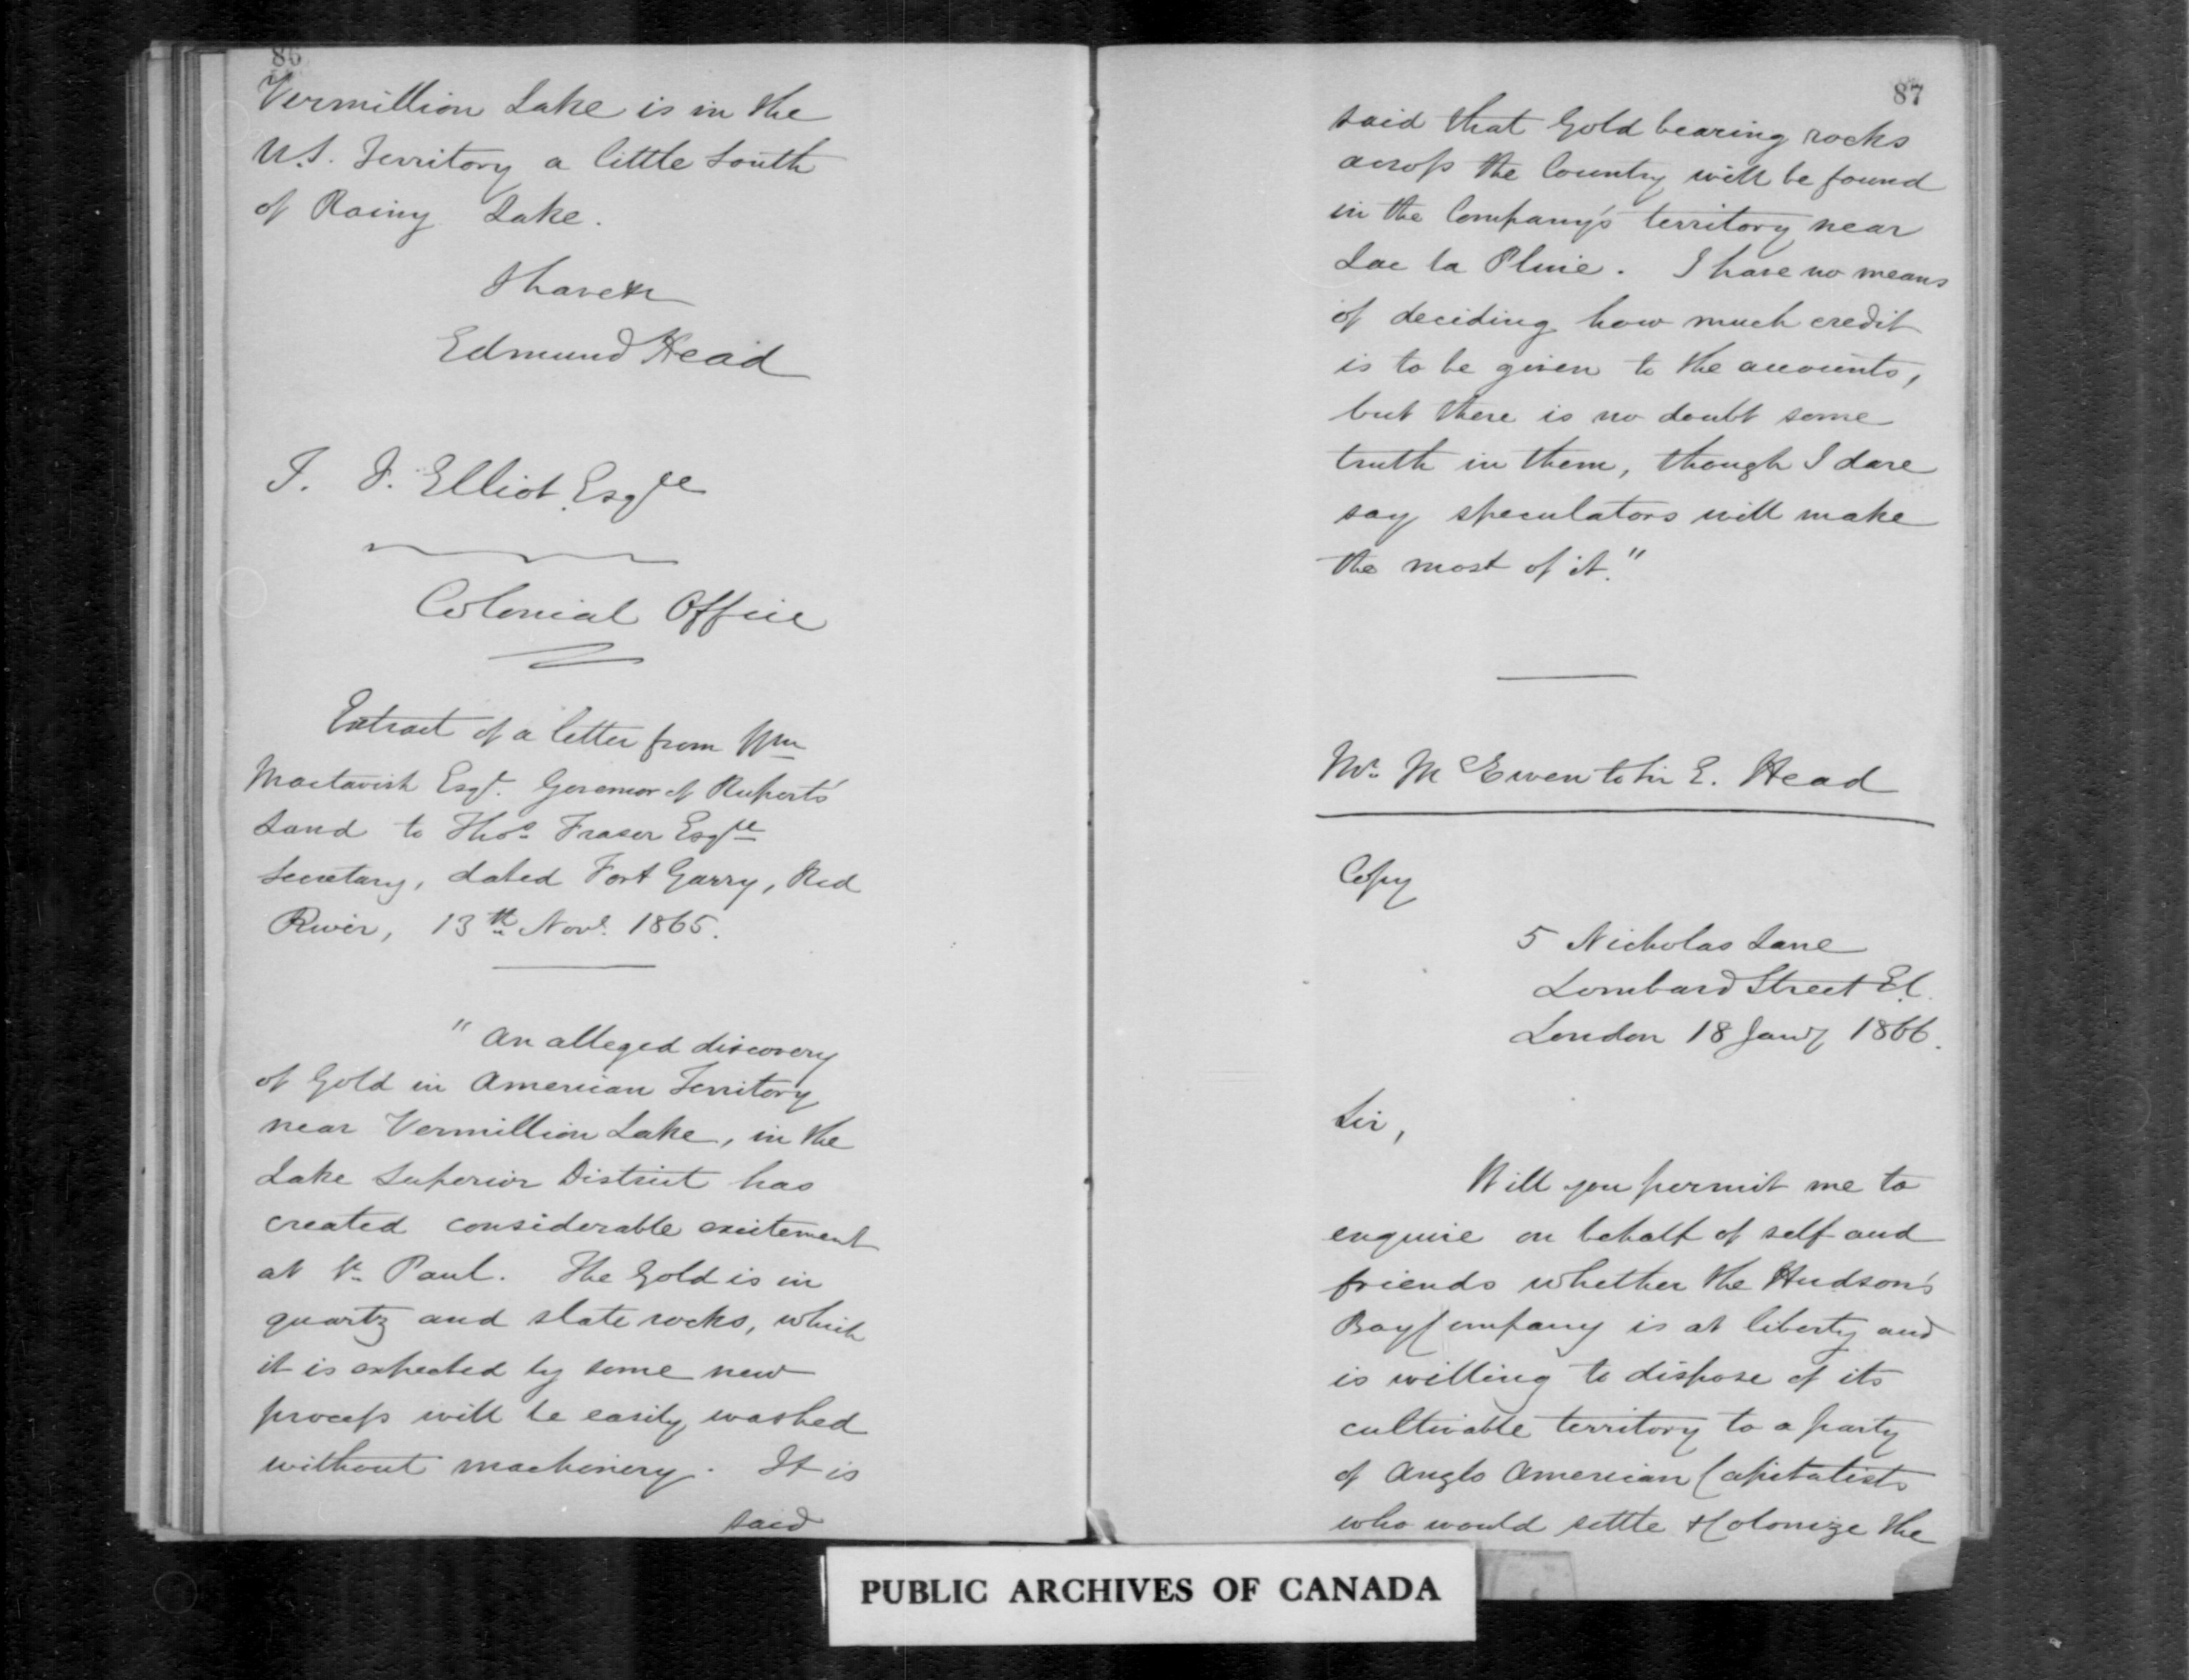 86
Vermillion Lake is in the
U.S. Territory a little South
of Rainy Lake.
I have &c
Edmund Head
T. F. Elliot Esqre
Colonial Office
Extract of a letter from Wm
Mactavish Esqr. Governor of Ruperts'
Land to Thos. Fraser Esqre
Secretary, dated Fort Garry, Red
River, 13th Novr. 1865.
"An alleged discovery
of Gold in American Territory
near Vermillion Lake, in the
Lake Superior District has
created considerable excitement
at St. Paul. The Gold is in
quartz and slate rocks, which
it is expected by some new
process will be easily washed
without machinery. It is
said
87
said that Gold bearing rocks
across the Country will be found
in the Company's territory near
Lac la Pluie. I have no means
of deciding how much credit
is to be given to the accounts,
but there is no doubt some
truth in them, though I dare
say speculators will make
the most of it."
Mr. McEwen to Sir E. Head
Copy
5 Nicholas Lane
Lombard Street E.C.
London 18 Jany 1866.
Sir,
Will you permit me to
enquire on behalf of self and
friends whether the Hudson's
Bay Company is at liberty and
is willing to dispose of its
cultivable territory to a party
of Anglo American Capitalists
who would settle & Colonize the
PUBLIC ARCHIVES OF CANADA